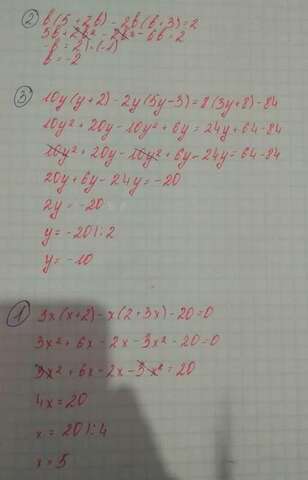 ② b(5+2b)-2b(b+3)=2
5b+2b²-2b²-6b=2
-b=2|·(-1)
b=-2
③ 10y(y+2)-2y(5y-3)=8(3y+8)-84
10y²+20y-10y²+6y=24y+64-84
10y²+20y-10y²+6y-24y=64-84
20y+6y-24y=-20
2y=-20
y=-20|:2
y=-10
① 3x(x+2)-x(2+3x)-20=0
3x²+6x-2x-3x²-20=0
3x²+6x-2x-3x²=20
4x=20
x=20|:4
x=5